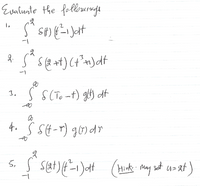 Evaluate the followings
1. ∫_{-1}^{2} δ(t)(t²-1)dt
2. ∫_{-1}^{2} δ(2+t)(t³+1)dt
3. ∫_{-∞}^{∞} δ(T₀-t) g(t) dt
4. ∫_{-∞}^{∞} δ(t-τ) g(τ) dτ
5. ∫_{-1}^{2} δ(2t)(t²-1)dt (Hint: may set u=2t)